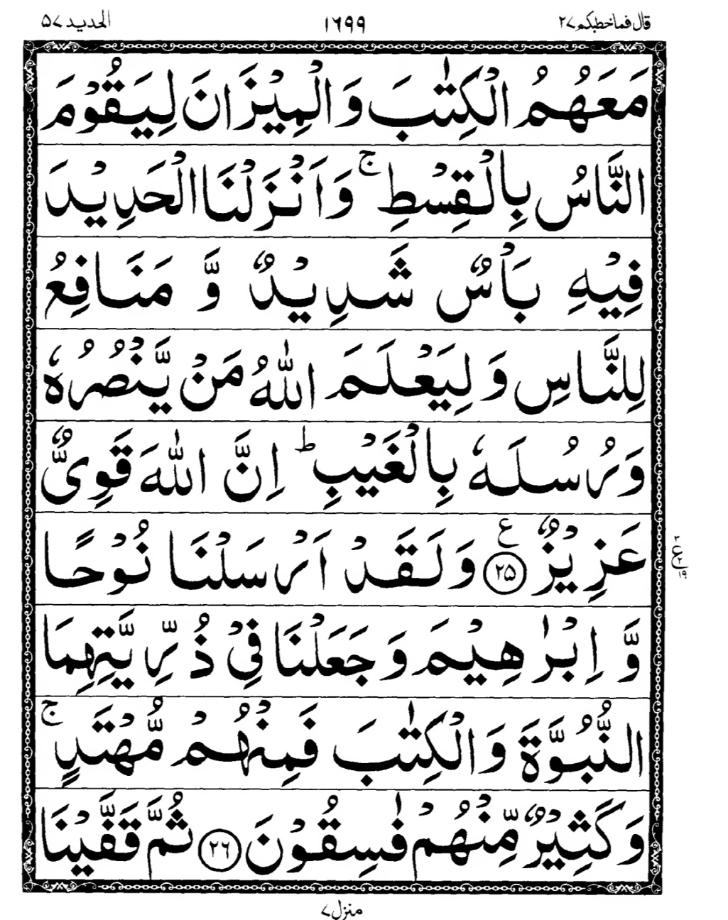 قال فما خطبکم ۲۷
۱۶۹۹
الحدید ۵۷
مَعَهُمُ الْكِتٰبَ وَالْمِيْزَانَ لِيَقُوْمَ
النَّاسُ بِالْقِسْطِ ۚ وَاَنْزَلْنَا الْحَدِيْدَ
فِيْهِ بَاْسٌ شَدِيْدٌ وَّ مَنَافِعُ
لِلنَّاسِ وَلِيَعْلَمَ اللّٰهُ مَنْ يَّنْصُرُهٗ
وَرُسُلَهٗ بِالْغَيْبِ ؕ اِنَّ اللّٰهَ قَوِيٌّ
عَزِيْزٌ ع ۲۵ وَلَقَدْ اَرْسَلْنَا نُوْحًا
وَّ اِبْرٰهِيْمَ وَجَعَلْنَا فِيْ ذُرِّيَّتِهِمَا
النُّبُوَّةَ وَالْكِتٰبَ فَمِنْهُمْ مُّهْتَدٍ ۚ
وَكَثِيْرٌ مِّنْهُمْ فٰسِقُوْنَ ۲۶ ثُمَّ قَفَّيْنَا
ع
۱۹
منزل ۷